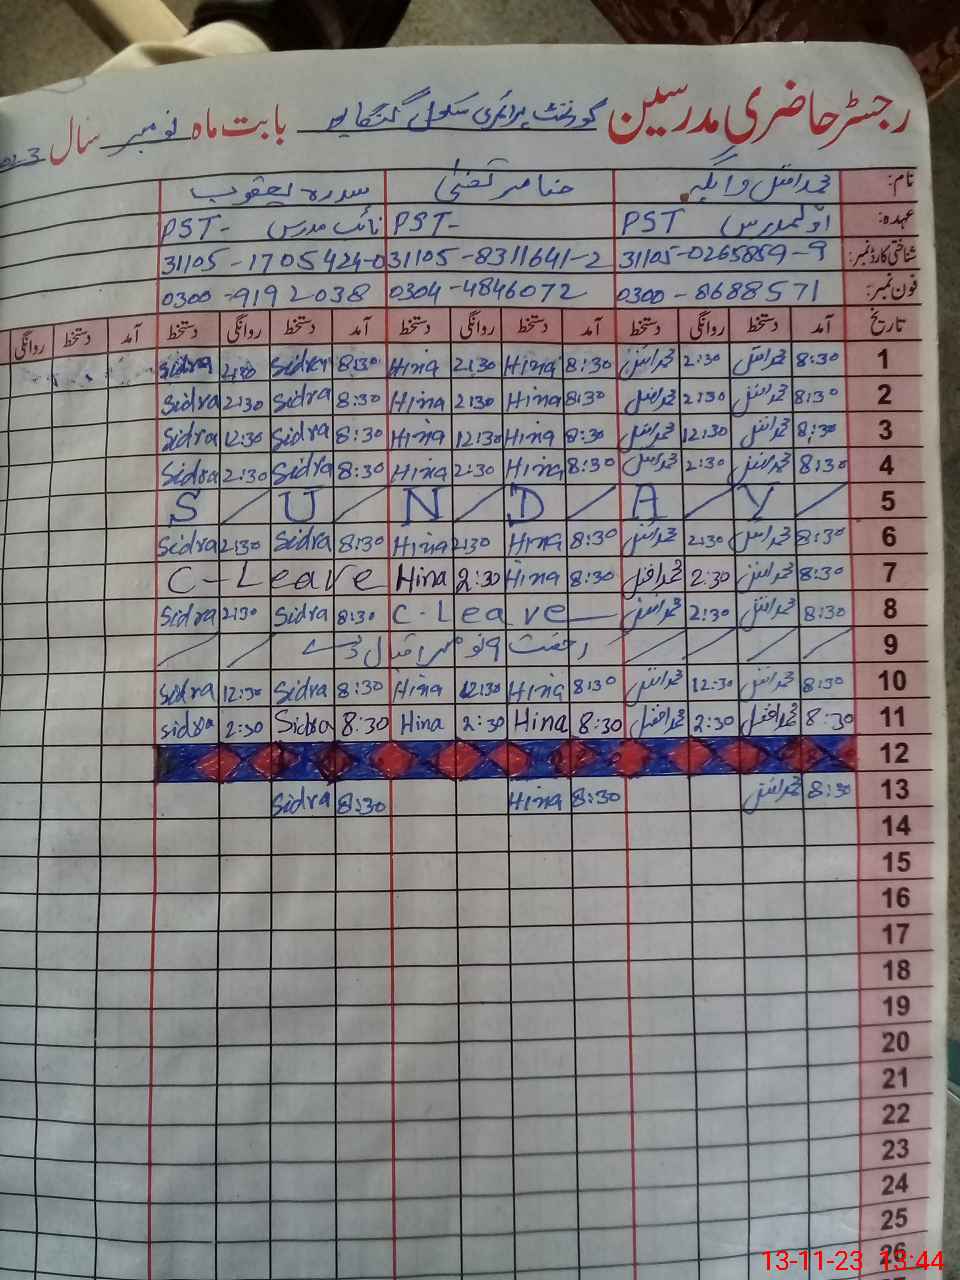 رجسٹر حاضری مدرسین گورنمنٹ پرائمری سکول بابت ماہ نومبر سال
نام: محمد افضل حنا مرتضیٰ سدرہ یعقوب
عہدہ: اول مدرس PST PST- نائب مدرس PST-
شناختی کارڈ نمبر: 31105-0265859-9 31105-8311641-2 31105-1705424-0
فون نمبر: 0300-8688571 0304-4846072 0300-9192038
تاریخ آمد دستخط روانگی دستخط آمد دستخط روانگی دستخط آمد دستخط روانگی دستخط آمد دستخط روانگی
1 8:30 محمد افضل 2:30 محمد افضل 8:30 Hina 2:30 Hina 8:30 Sidra 2:30 Sidra
2 8:30 محمد افضل 2:30 محمد افضل 8:30 Hina 2:30 Hina 8:30 Sidra 2:30 Sidra
3 8:30 محمد افضل 12:30 محمد افضل 8:30 Hina 12:30 Hina 8:30 Sidra 12:30 Sidra
4 8:30 محمد افضل 2:30 محمد افضل 8:30 Hina 2:30 Hina 8:30 Sidra 2:30 Sidra
5 S U N D A Y
6 8:30 محمد افضل 2:30 محمد افضل 8:30 Hina 2:30 Hina 8:30 Sidra 2:30 Sidra
7 8:30 محمد افضل 2:30 محمد افضل 8:30 Hina 2:30 Hina C-Leave
8 8:30 محمد افضل 2:30 محمد افضل C-Leave 8:30 Sidra 2:30 Sidra
9 رخصت 9 نومبر اقبال ڈے
10 8:30 محمد افضل 12:30 محمد افضل 8:30 Hina 12:30 Hina 8:30 Sidra 12:30 Sidra
11 8:30 محمد افضل 2:30 محمد افضل 8:30 Hina 2:30 Hina 8:30 Sidra 2:30 Sidra
12
13 8:30 محمد افضل 8:30 Hina 8:30 Sidra
14
15
16
17
18
19
20
21
22
23
24
25
26
13-11-23 13:44